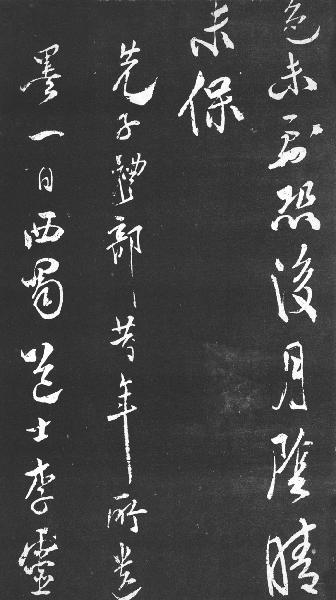 色未到恐後月陰晴
未保
先子懃部、昔年所遺
墨一日西蜀道士李靈